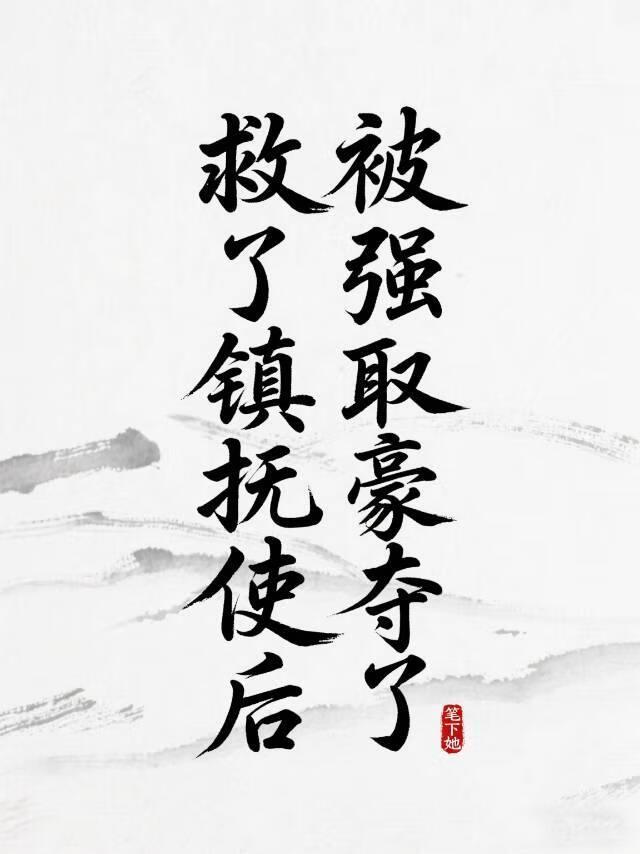 救了镇抚使后
被强取豪夺了
笔下她